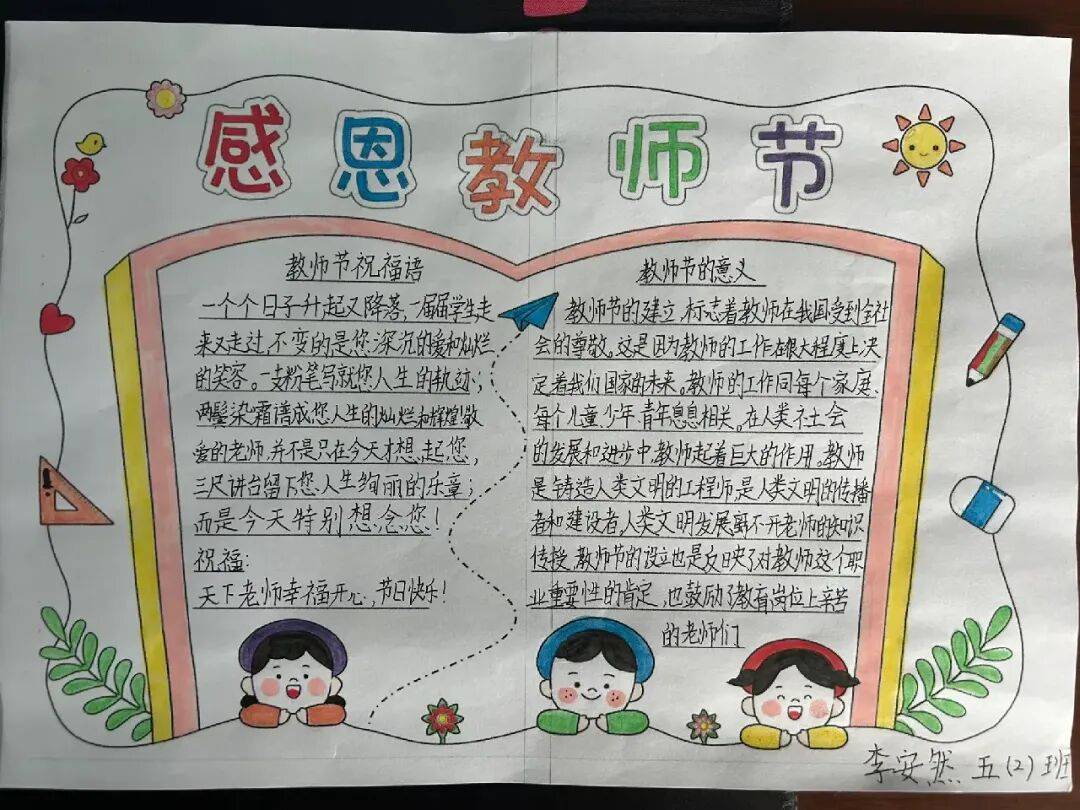 感恩教师节
教师节祝福语
一个个日子升起又降落,一届届学生走
来又走过,不变的是您深沉的爱和灿烂
的笑容。一支粉笔写就您人生的轨迹;
两鬓染霜谱成您人生的灿烂和辉煌!敬
爱的老师,并不是只在今天才想起您,
三尺讲台留下您人生绚丽的乐章;
而是今天特别想念您!
祝福:
天下老师幸福开心,节日快乐!
教师节的意义
教师节的建立,标志着教师在我国受到全社
会的尊敬。这是因为教师的工作在很大程度上决
定着我们国家的未来。教师的工作同每个家庭、
每个儿童、少年、青年息息相关。在人类社会
的发展和进步中,教师起着巨大的作用。教师
是铸造人类文明的工程师,是人类文明的传播
者和建设者,人类文明发展离不开老师的知识
传授,教师节的设立也是反映了对教师这个职
业重要性的肯定,也鼓励了教育岗位上辛苦
的老师们
李安然 五(2)班